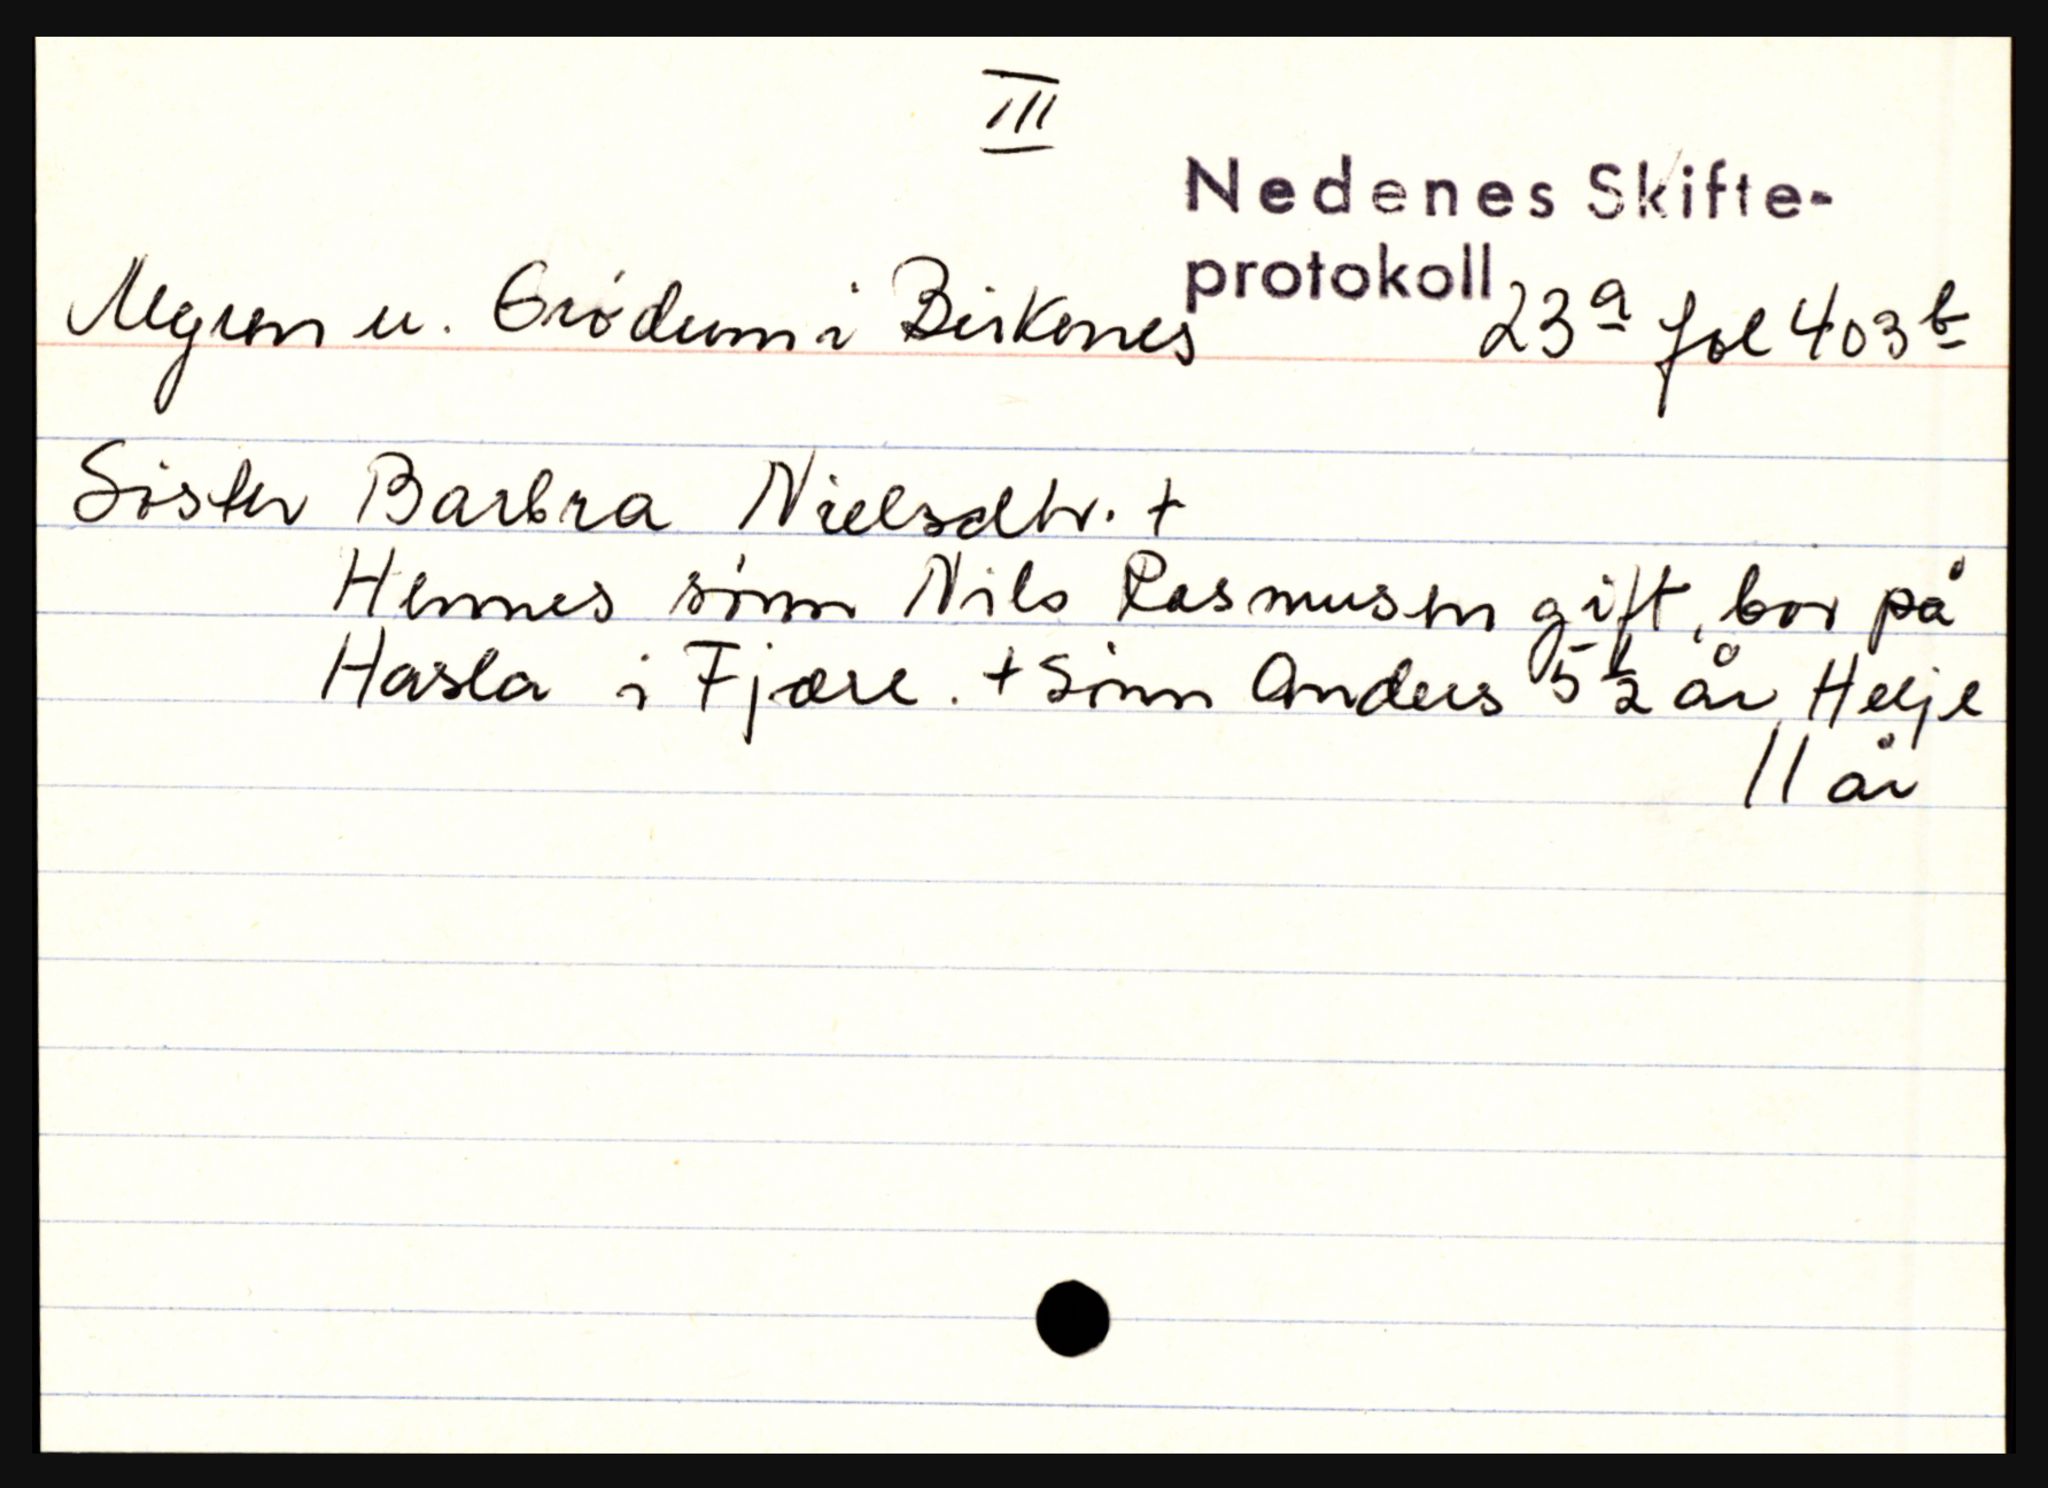 III
Nedenes Skifte-
protokoll
Mgren u. Grödum i Birkenes 23a fol 403b
Söster Barbra Nielsdtr. +
Hennes sönn Nils Rasmusen gift, bor på
Hasla i Fjære. + Sönn Anders 5½ år, Helje
11 år